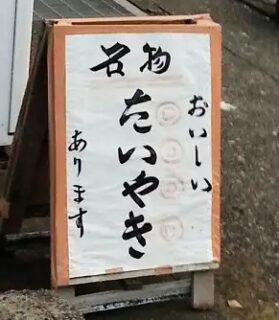 名物
おいしい
たいやき
あります